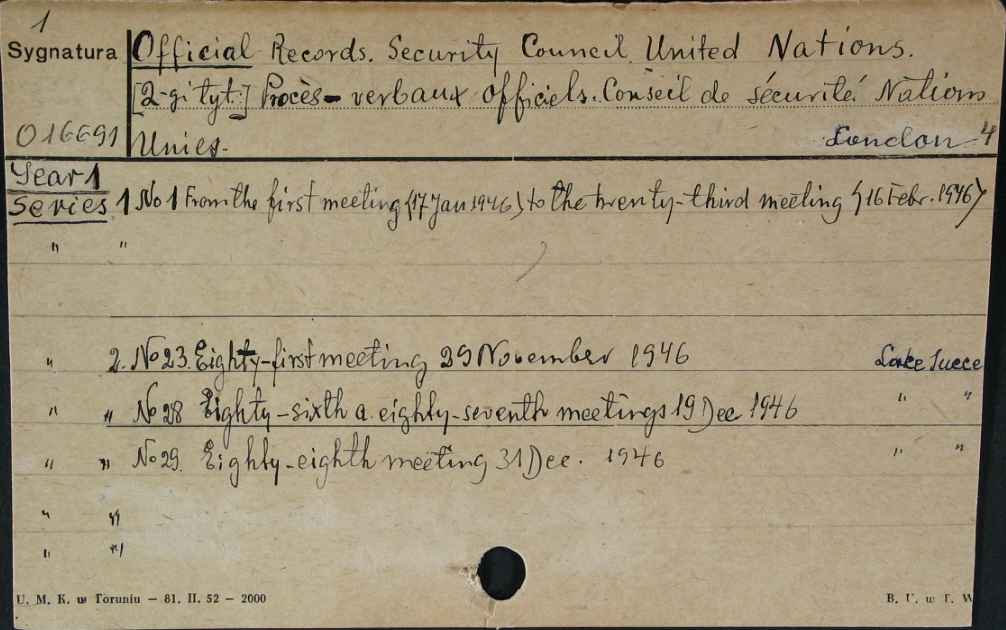 1
Sygnatura Official Records. Security Council. United Nations.
[2-gi tyt:] Procès-verbaux officiels. Conseil de sécurité Nations
016691 Unies. London 4
Year 1
Series 1 No 1 From the first meeting (17 Jan 1946) to the twenty-third meeting (16 Febr. 1946)
" "
" 2. No 23. Eighty-first meeting 29 November 1946 Lake Suece
" " No 28 Eighty-sixth a. eighty-seventh meetings 19 Dec 1946 " "
" " No 29. Eighty-eighth meeting 31 Dec. 1946 " "
" "
" "
U. M. K. w Toruniu — 81. II. 52 — 2000 B. U. w T. W